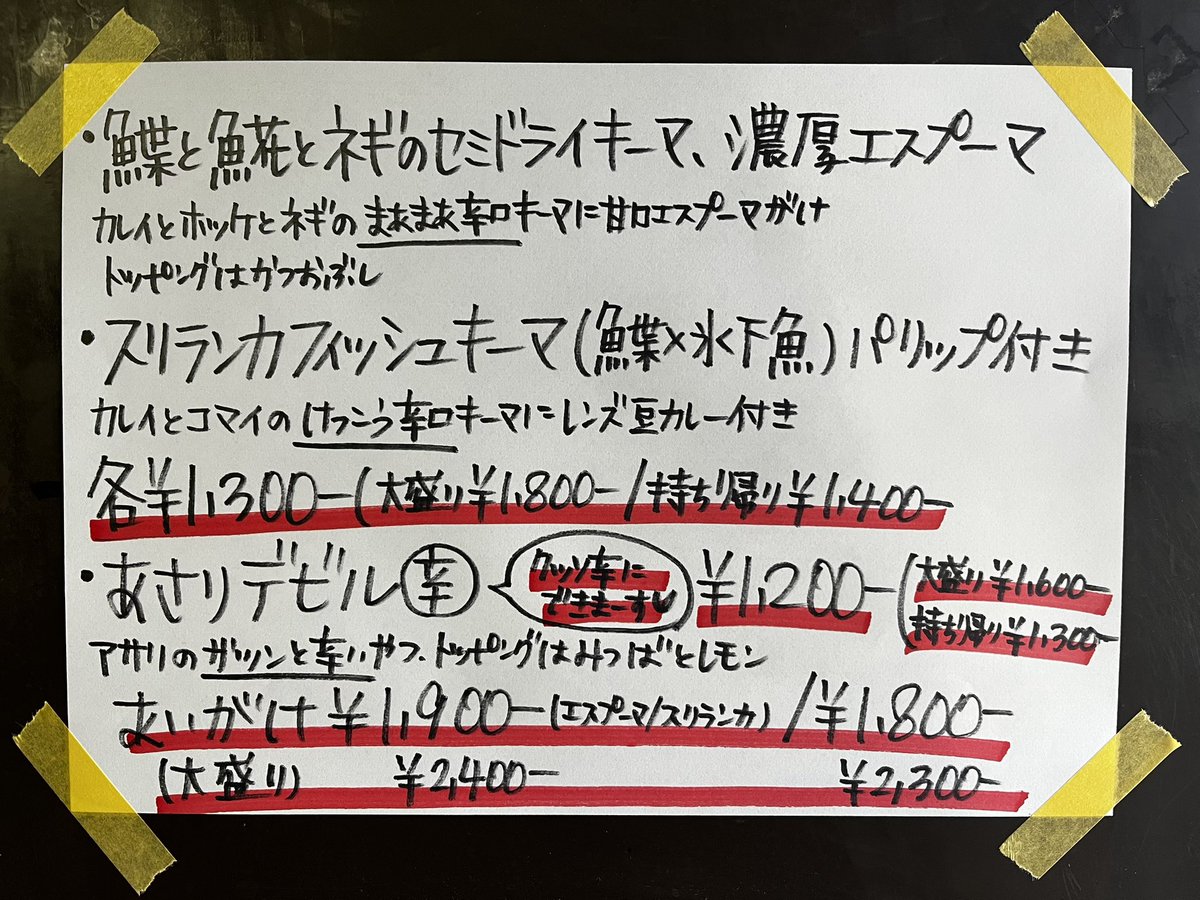 ・鰈と𩸽とネギのセミドライキーマ、濃厚エスプーマ
カレイとホッケとネギのまあまあ辛口キーマに甘口エスプーマがけ
トッピングはかつおぶし
・スリランカフィッシュキーマ(鰈×氷下魚)パリップ付き
カレイとコマイのけっこう辛口キーマにレンズ豆カレー付き
各¥1,300-(大盛り¥1,800-/持ち帰り¥1,400-
・あさりデビル辛 クッソ辛にできまーすし ¥1,200-(大盛り¥1,600-
持ち帰り¥1,300-
アサリのガツンと辛いやつ、トッピングはみつばとレモン
あいがけ¥1,900-(エスプーマ/スリランカ)/¥1,800-
(大盛り) ¥2,400- ¥2,300-